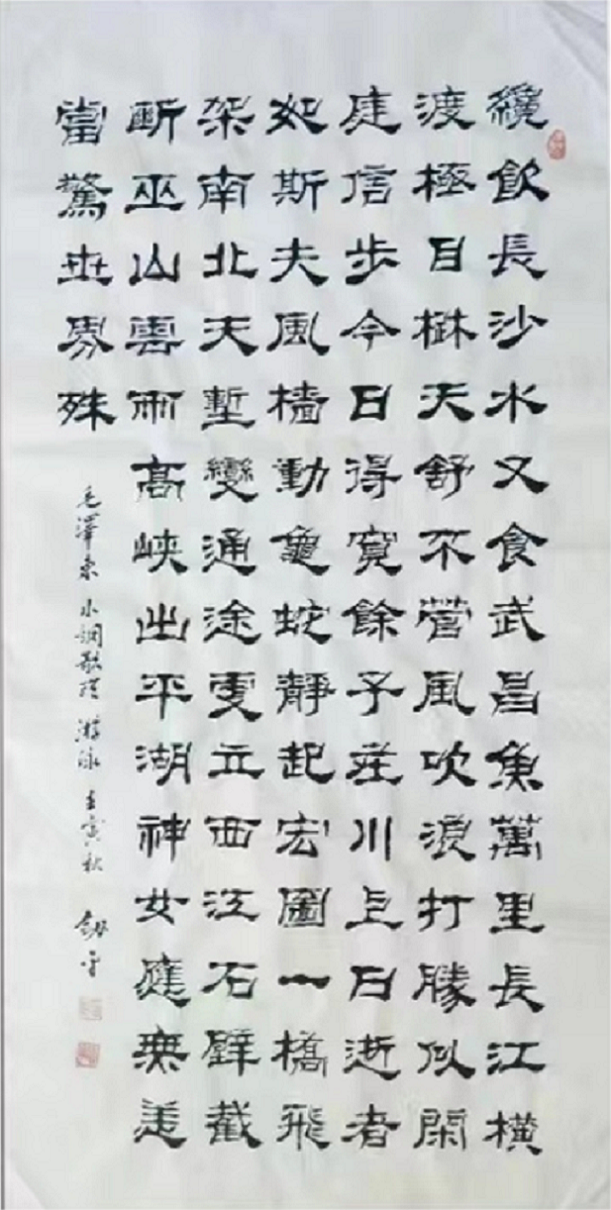 纔飲長沙水又食武昌魚萬里長江橫
渡極目楚天舒不管風吹浪打勝似閑
庭信步今日得寬餘子在川上曰逝者
如斯夫風檣動龜蛇靜起宏圖一橋飛
架南北天塹變通途更立西江石壁截
斷巫山雲雨高峽出平湖神女應無恙
當驚世界殊
毛澤東 水調歌頭 游泳 壬寅秋